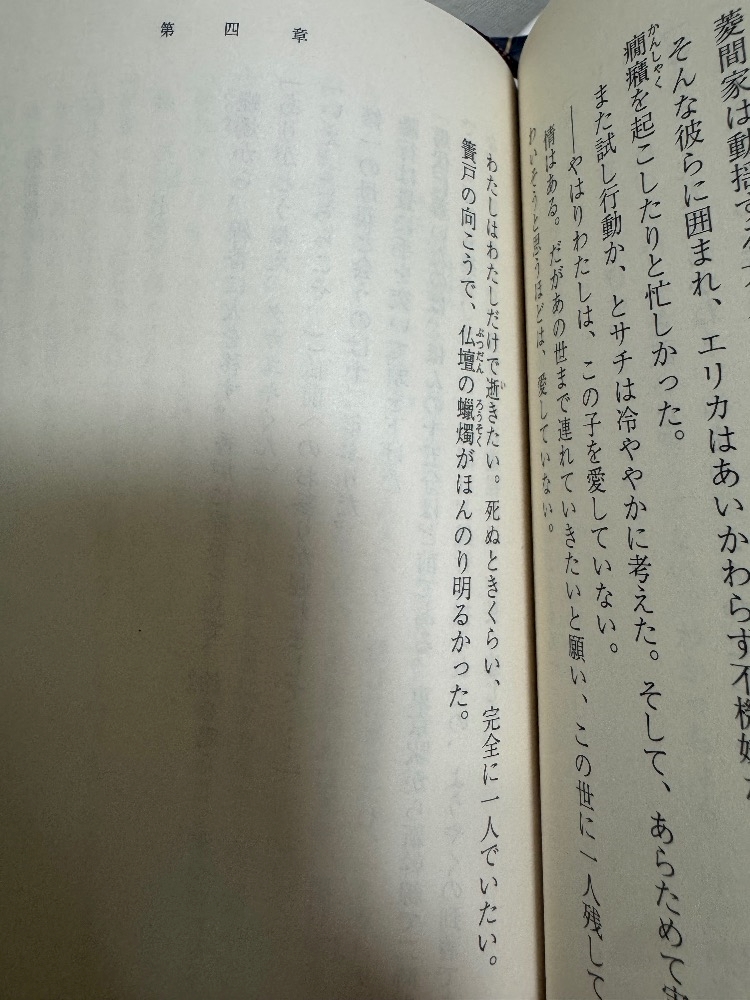 菱間家は動揺する
そんな彼らに囲まれ、エリカはあいかわらず不機嫌
癇癪を起こしたりと忙しかった。
また試し行動か、とサチは冷ややかに考えた。そして、あらためて
――やはりわたしは、この子を愛していない。
情はある。だがあの世まで連れていきたいと願い、この世に一人残して
わいそうと思うほどは、愛していない。
第四章
わたしはわたしだけで逝きたい。死ぬときくらい、完全に一人でいたい。
簀戸の向こうで、仏壇の蠟燭がほんのり明るかった。